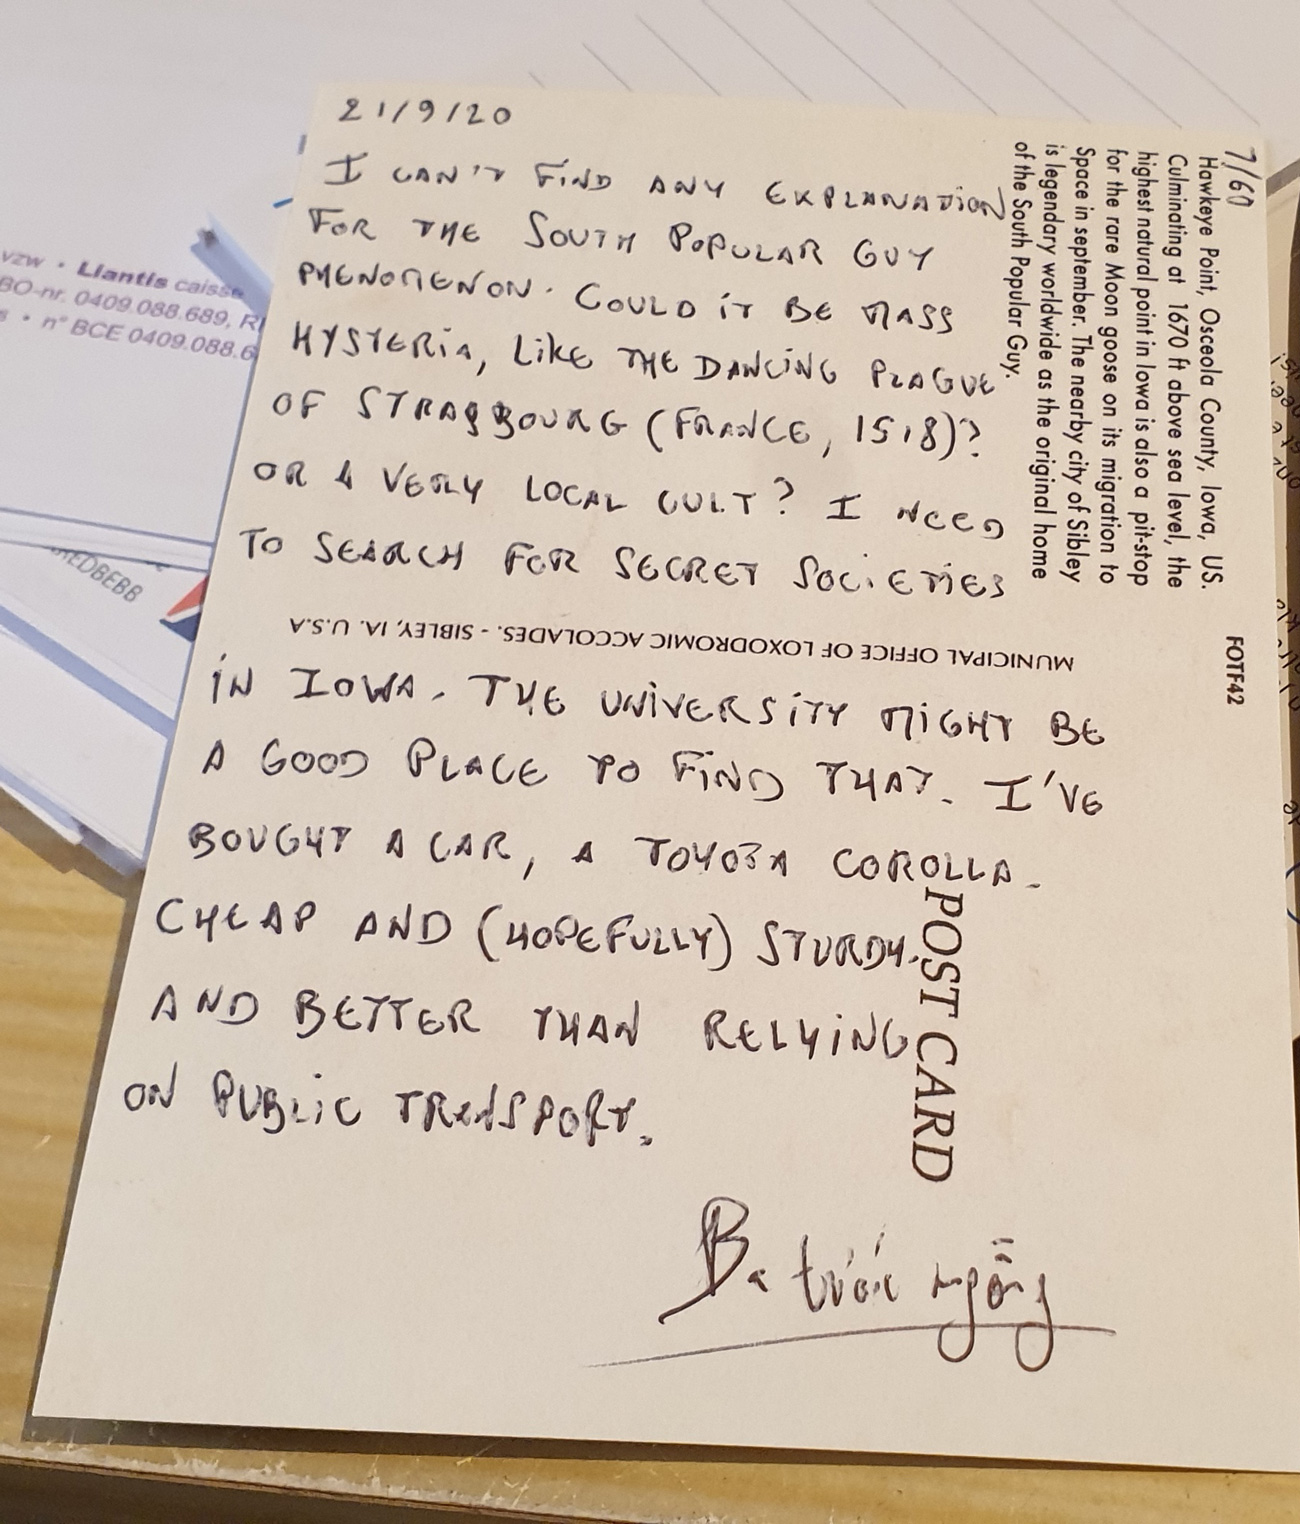 21/9/20
I CAN'T FIND ANY EXPLANATION
FOR THE SOUTH POPULAR GUY
PHENOMENON. COULD IT BE MASS
HYSTERIA, LIKE THE DANCING PLAGUE
OF STRASBOURG (FRANCE, 1518)?
OR A VERY LOCAL CULT? I NEED
TO SEARCH FOR SECRET SOCIETIES
IN IOWA. THE UNIVERSITY MIGHT BE
A GOOD PLACE TO FIND THAT. I'VE
BOUGHT A CAR, A TOYOTA COROLLA.
CHEAP AND (HOPEFULLY) STURDY.
AND BETTER THAN RELYING
ON PUBLIC TRANSPORT.
Ba tước ngỗng
7/60
Hawkeye Point, Osceola County, Iowa, US.
Culminating at 1670 ft above sea level, the
highest natural point in Iowa is also a pit-stop
for the rare Moon goose on its migration to
Space in september. The nearby city of Sibley
is legendary worldwide as the original home
of the South Popular Guy.
FOTF42
MUNICIPAL OFFICE OF LOXODROMIC ACCOLADES. - SIBLEY, IA. U.S.A
POST CARD
vzw • Liantis caisse
BO-nr. 0409.088.689, R
s • n° BCE 0409.088.6
EDBEBB